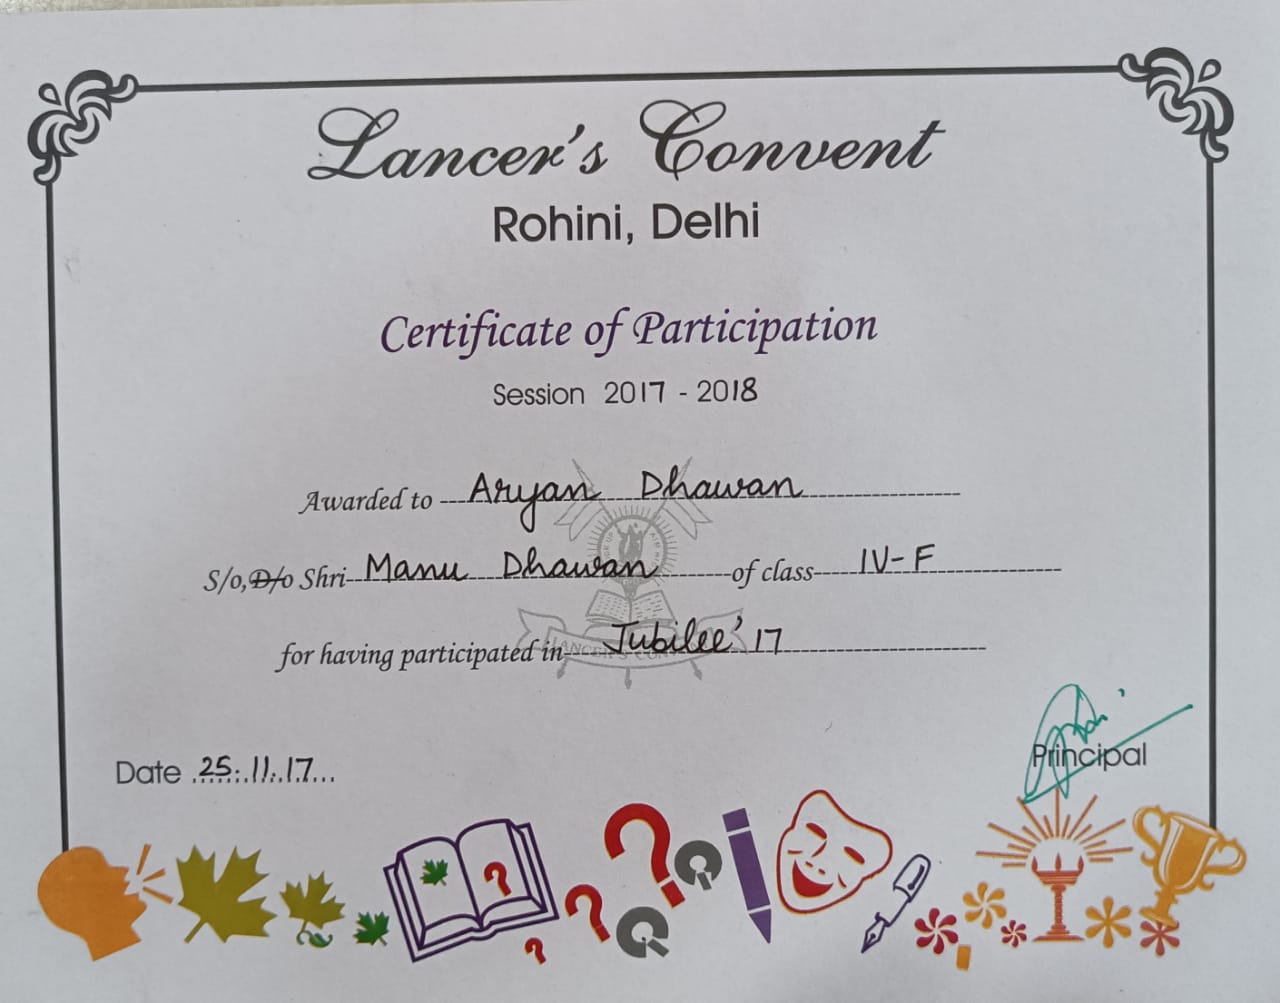 Lancer's Convent
Rohini, Delhi
Certificate of Participation
Session 2017 - 2018
Awarded to Aryan Dhawan
S/o, D/o Shri Manu Dhawan of class IV-F
for having participated in Jubilee'17
LANCER'S CONVENT
Date 25.11.17
Principal